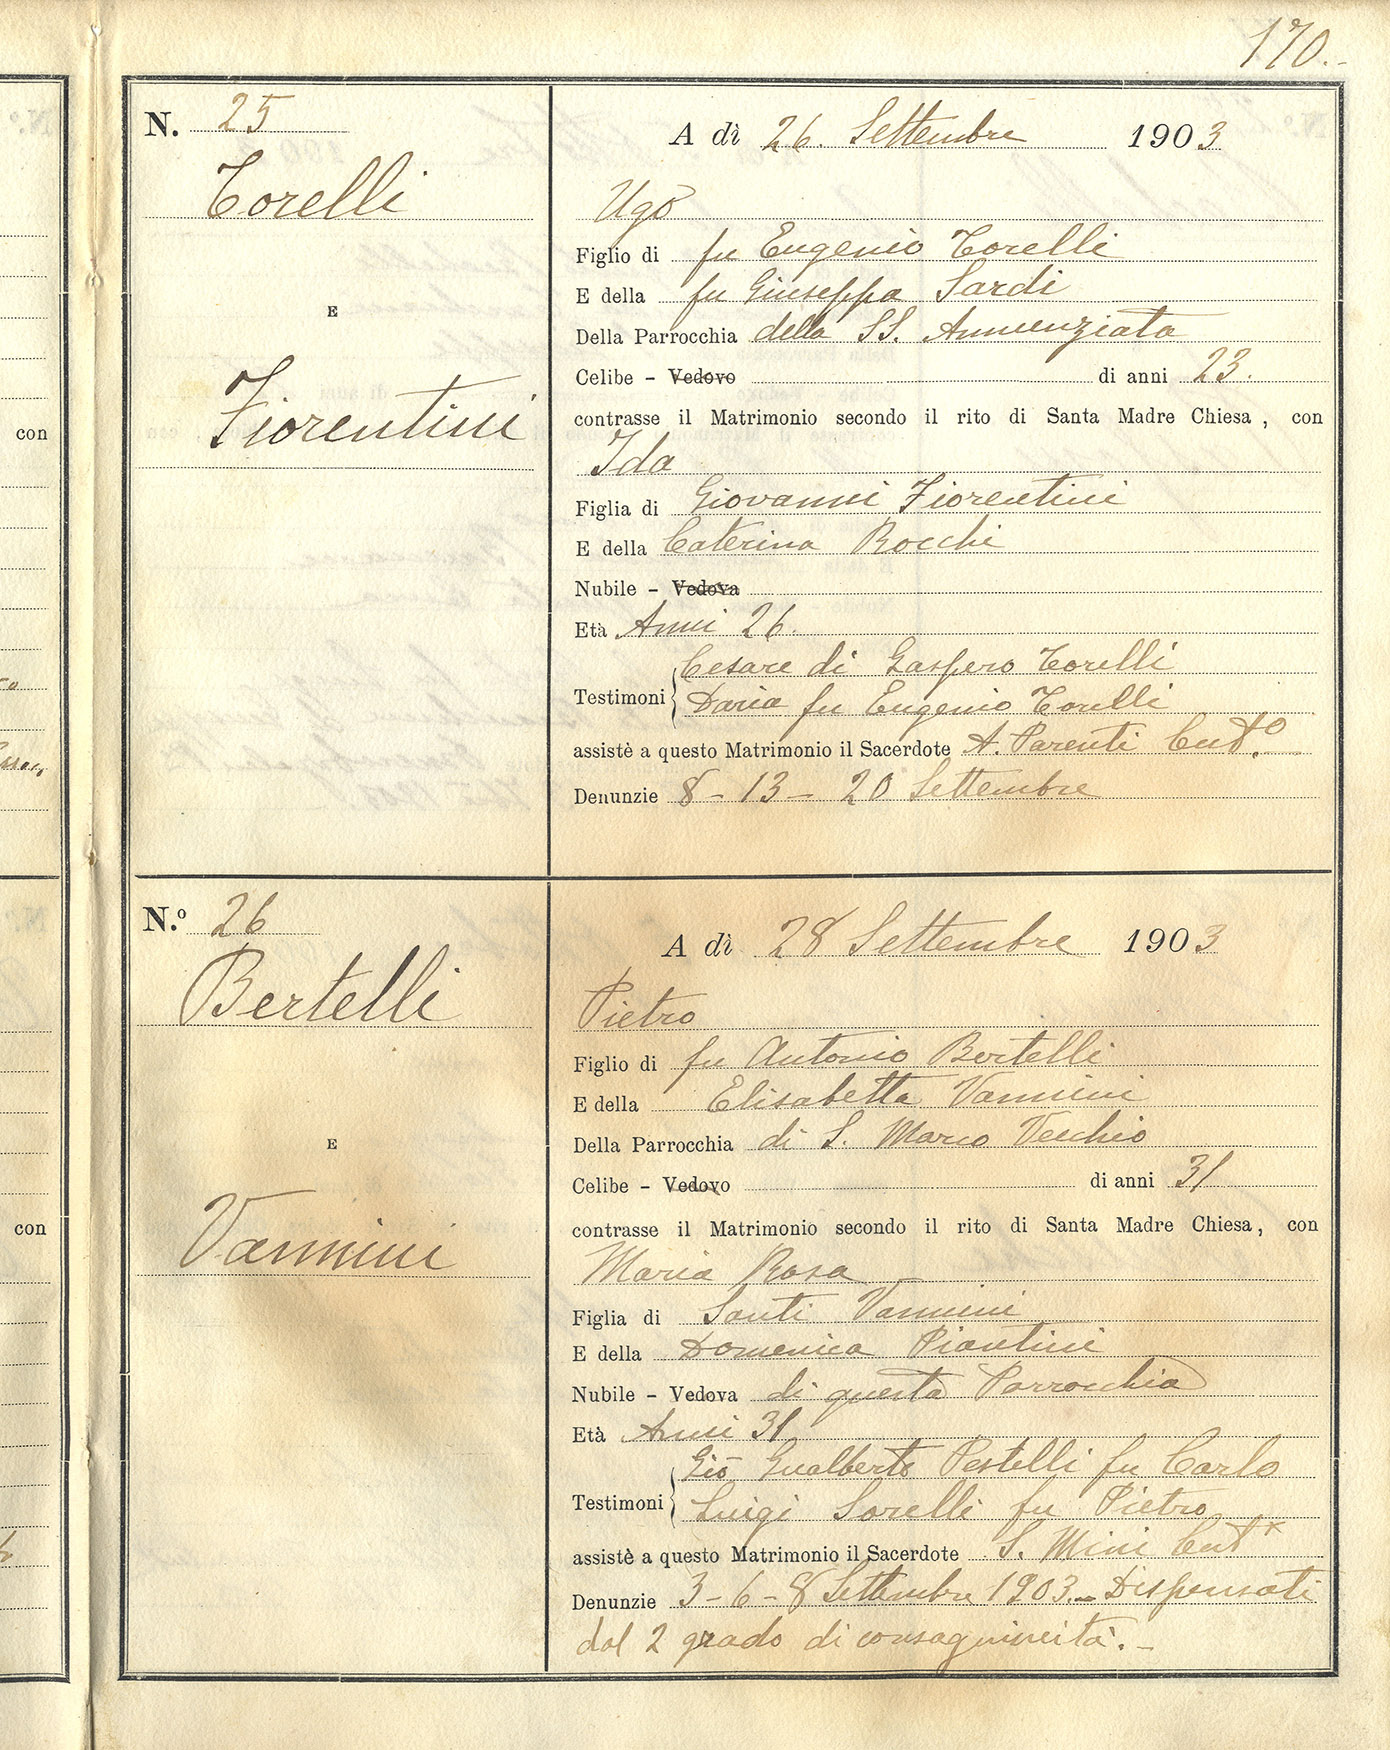 170.-
N. 25
Torelli
E
Fiorentini
A dì 26. Settembre 1903
Ugo
Figlio di fu Eugenio Torelli
E della fu Giuseppa Sardi
Della Parrocchia della SS. Annunziata
Celibe - Vedovo di anni 23.
contrasse il Matrimonio secondo il rito di Santa Madre Chiesa, con
Ida
Figlia di Giovanni Fiorentini
E della Caterina Rocchi
Nubile - Vedova
Età Anni 26.
Cesare di Gaspero Torelli
Testimoni
Daria fu Eugenio Torelli
assistè a questo Matrimonio il Sacerdote A. Parenti Cut.o
Denunzie 8 - 13 - 20 Settembre
N.o 26
Bertelli
E
Vannini
A dì 28 Settembre 1903
Pietro
Figlio di fu Antonio Bertelli
E della Elisabetta Vannini
Della Parrocchia di S. Marco Vecchio
Celibe - Vedovo di anni 31
contrasse il Matrimonio secondo il rito di Santa Madre Chiesa, con
Maria Rosa
Figlia di Santi Vannini
E della Domenica Piantini
Nubile - Vedova di questa Parrocchia
Età Anni 31
Gio Gualberto Pestelli fu Carlo
Testimoni
Luigi Sorelli fu Pietro
assistè a questo Matrimonio il Sacerdote S. Mini
Denunzie 3 - 6 - 8 Settembre 1903 - Dispensati
dal 2 grado di consaguineità. -
con
con